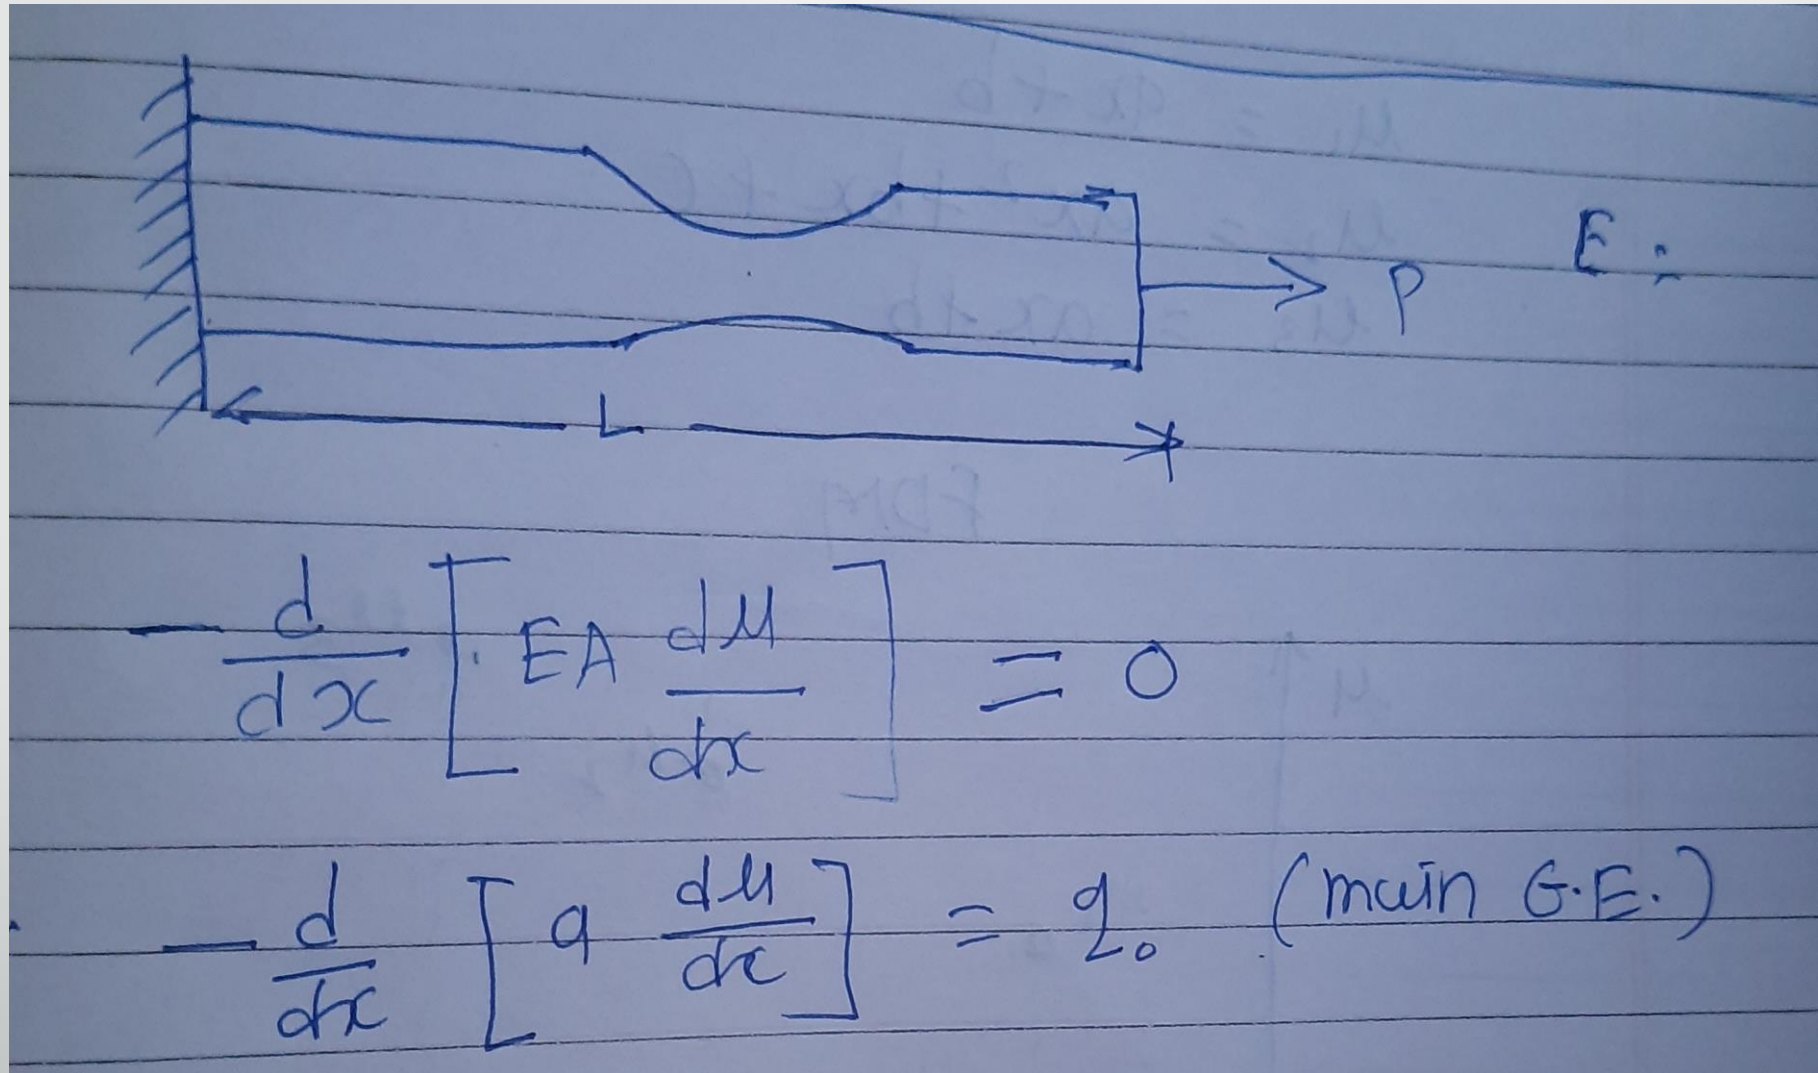 E:
P
L
- d/dx [EA du/dx] = 0
- d/dx [a du/dx] = q₀ (main G.E.)